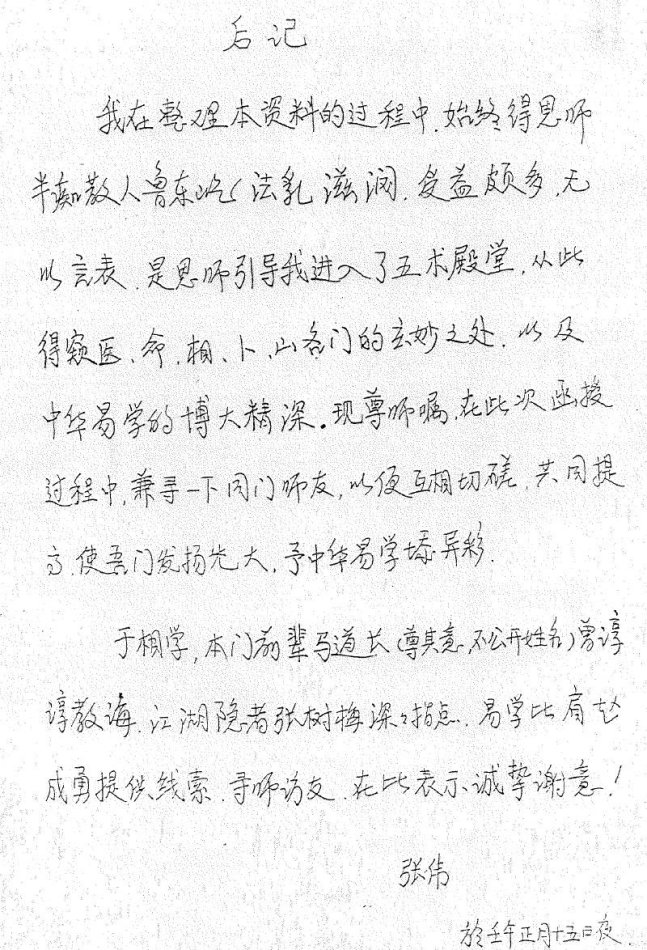 后记
我在整理本资料的过程中.始终得恩师
半痴散人鲁东屹(法乳滋润.受益颇多.无
以言表.是恩师引导我进入了五术殿堂.从此
得窥医、命、相、卜、山各门的玄妙之处.以及
中华易学的博大精深.现尊师嘱,在此次函授
过程中,兼寻一下同门师友,以便互相切磋,共同提
高.使吾门发扬光大,予中华易学添异彩.
于相学,本门前辈马道长(尊其意,不公开姓名)曾谆
谆教诲.江湖隐者张树梅深深指点.易学比肩赵
成勇提供线索.寻师访友.在此表示诚挚谢意!
张伟
於壬午正月十五日夜